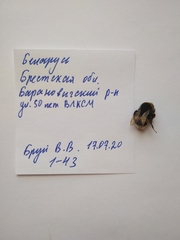 Беларусь
Брестская обл.
Барановичский р-н
ул. 50 лет ВЛКСМ
Бруй В.В. 17.07.20
1-43